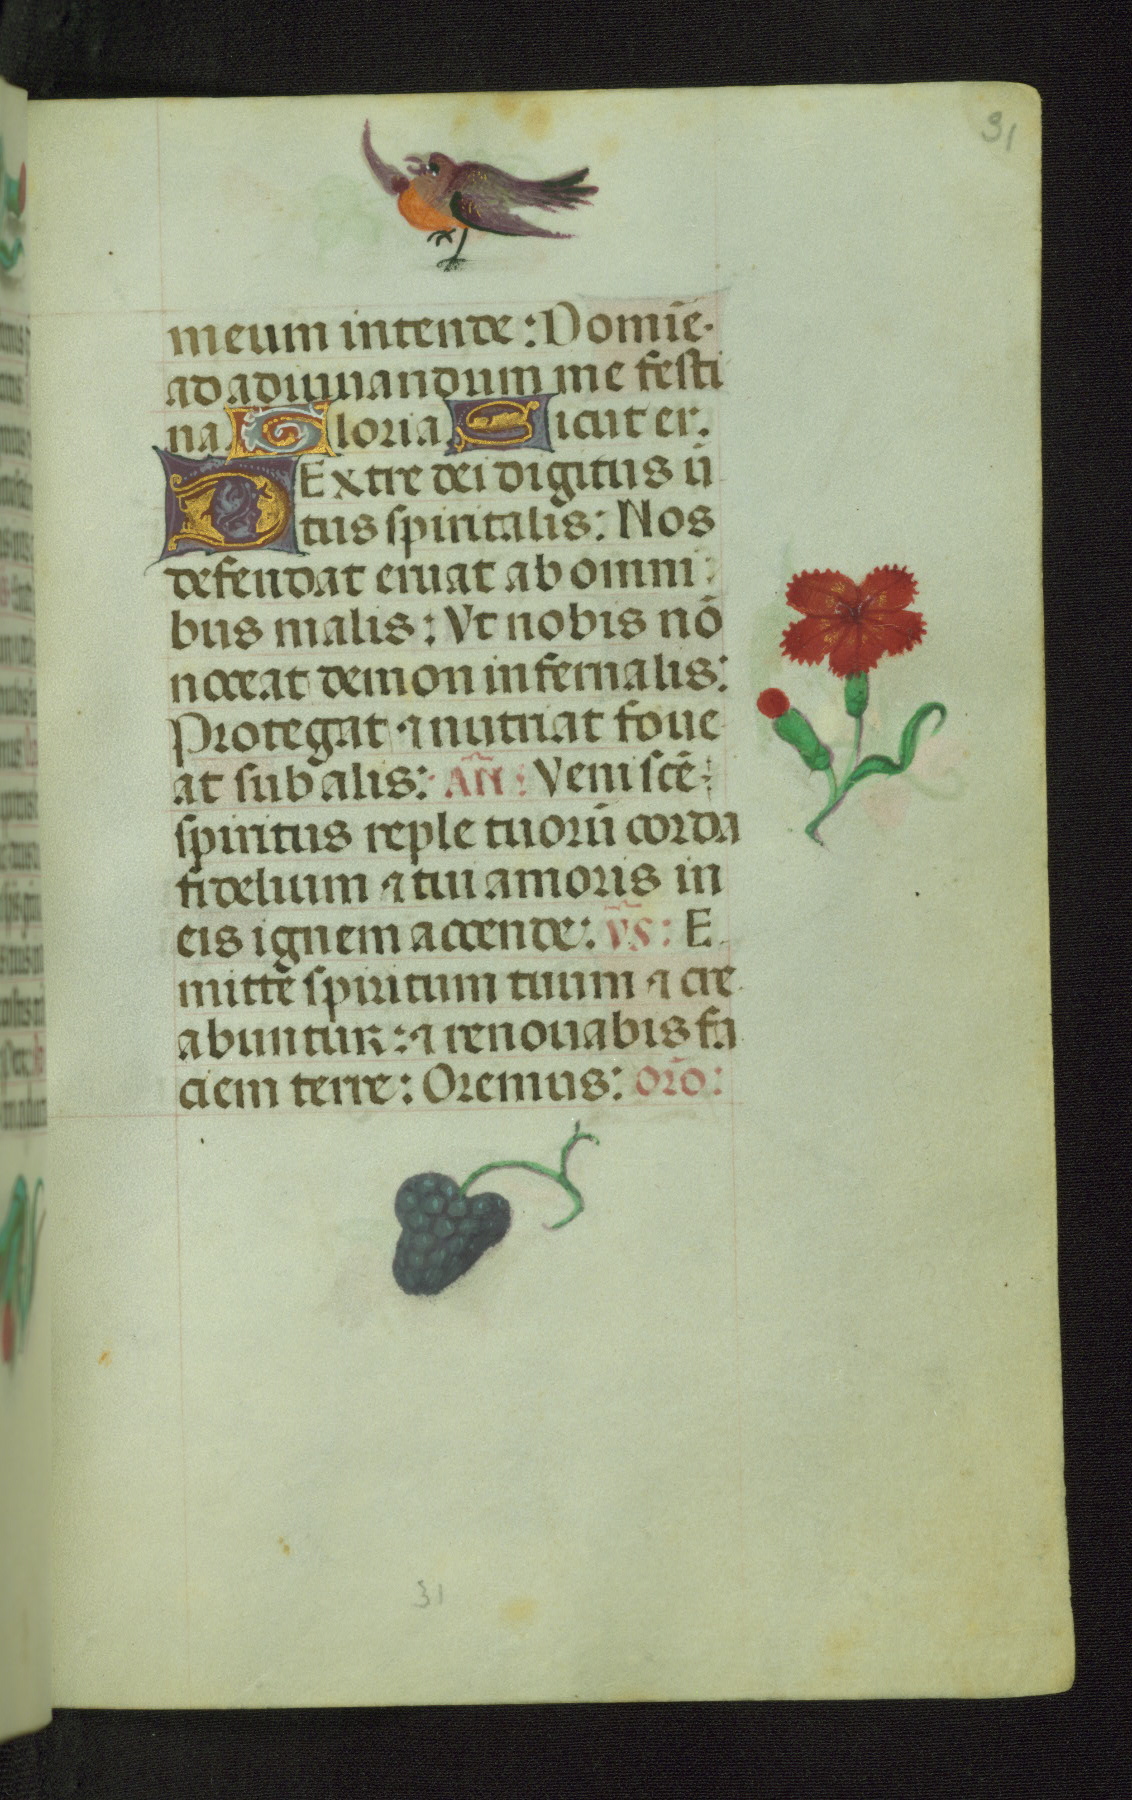 31
meum intende : Domīe·
ad adiuuandum me festi
na Gloria Sicut er.
DExtre dei digitus ū
tus spiritalis: Nos
defendat eruat ab omni
bus malis : Vt nobis nō
noceat demon infernalis:
Protegat ⁊ nutriat foue
at sub alis: Añ : Veni scē
spiritus reple tuorū corda
fidelium ⁊ tui amoris in
eis ignem accende: v̄s : E
mittē spiritum tuum ⁊ cre
abuntur : ⁊ renouabis fa
ciem terre : Oremus: orō:
31